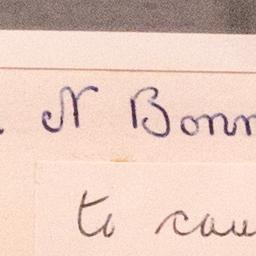 N Bonn
to cau